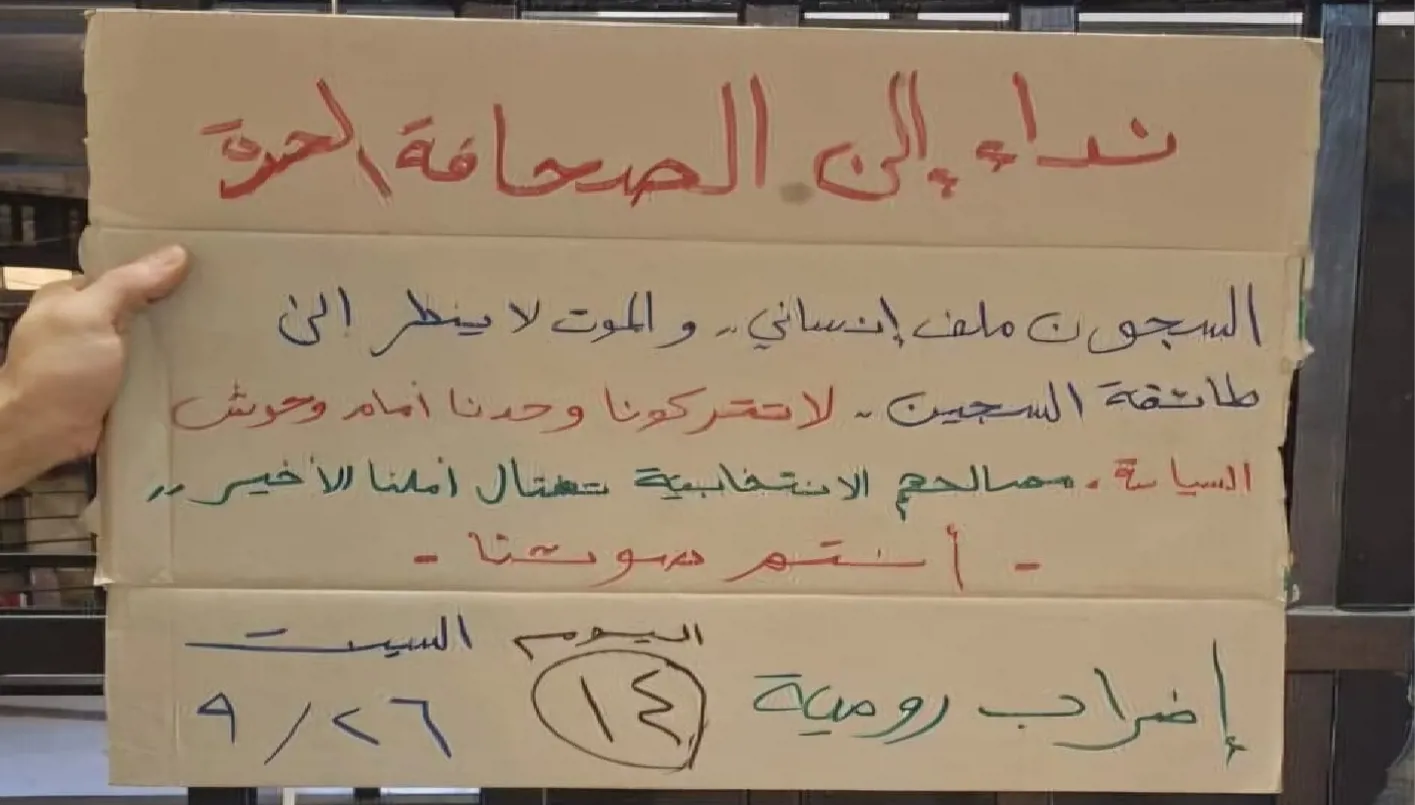 نداء إلى الصحافة الحرة
السجون ملف إنساني .. والموت لا ينظر الى
طائفة السجين .. لا تتركونا وحدنا أمام وحوش
السياسة . مصالحهم الانتخابية تغتال أملنا الأخير ..
- أنتم صوتنا -
إضراب رومية اليوم ١٤ السبت
٢٦ / ٩